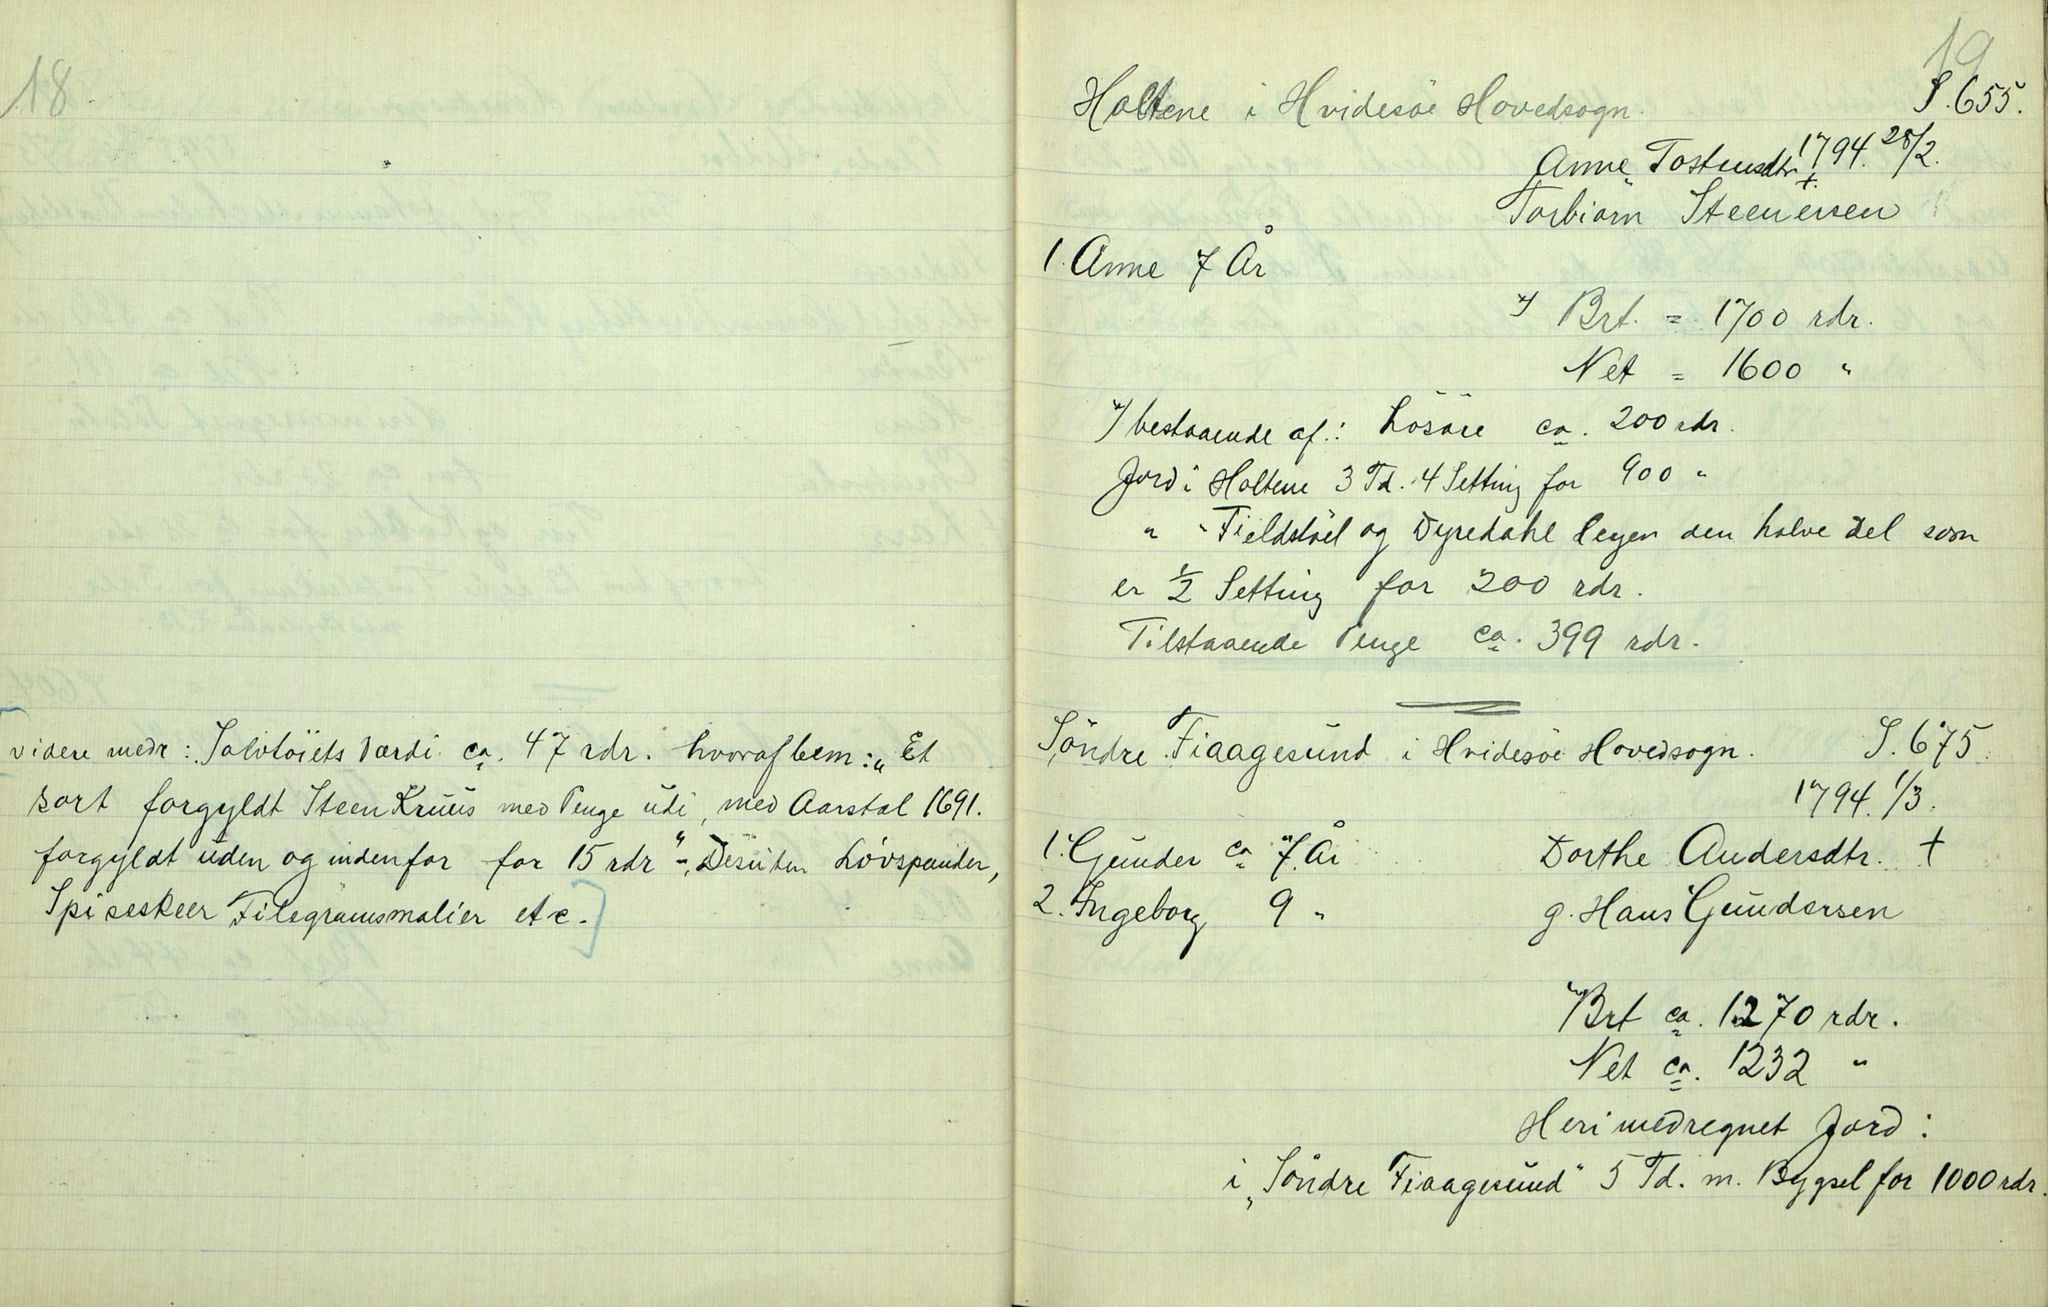 18
videre medr: Sølvtöiets Værdi ca. 47 rdr. hvoraf bem: „Et
sort forgyldt Steen Kruus med Penge udi, med Aarstal 1691.
forgyldt uden og indenfor for 15 rdr“ -, Desuten Lövspander,
Spiseskeer Filegramsmalier etc.
19
Holtene i Hvidesöe Hovedsogn. S. 655.
1794. 28/2.
Anne Tostensdtr +.
Torbiörn Steenersen
1. Anne 7 År
*/ Brt. = 1700 rdr.
Net = 1600 "
*/ bestaaende af: Lösöre ca. 200 rdr.
Jord i Holtene 3 Td. 4 Setting for 900 "
" " Fieldstöel og Dyredahl legen den halve Del som
er 1/2 Setting for 200 rdr.
Tilstaaende Penge ca. 399 rdr.
Söndre Fiaagesund i Hvidesöe Hovedsogn. S. 675.
1794. 1/3.
1. Gunder ca 7 År Dorthe Andersdtr. +
2. Ingeborg 9 " g. Hans Gundersen
Brt ca. 1270 rdr.
Net ca. 1232 "
Heri medregnet Jord:
i „Söndre Fiaagesund“ 5 Td. m. Bygsel for 1000 rdr.